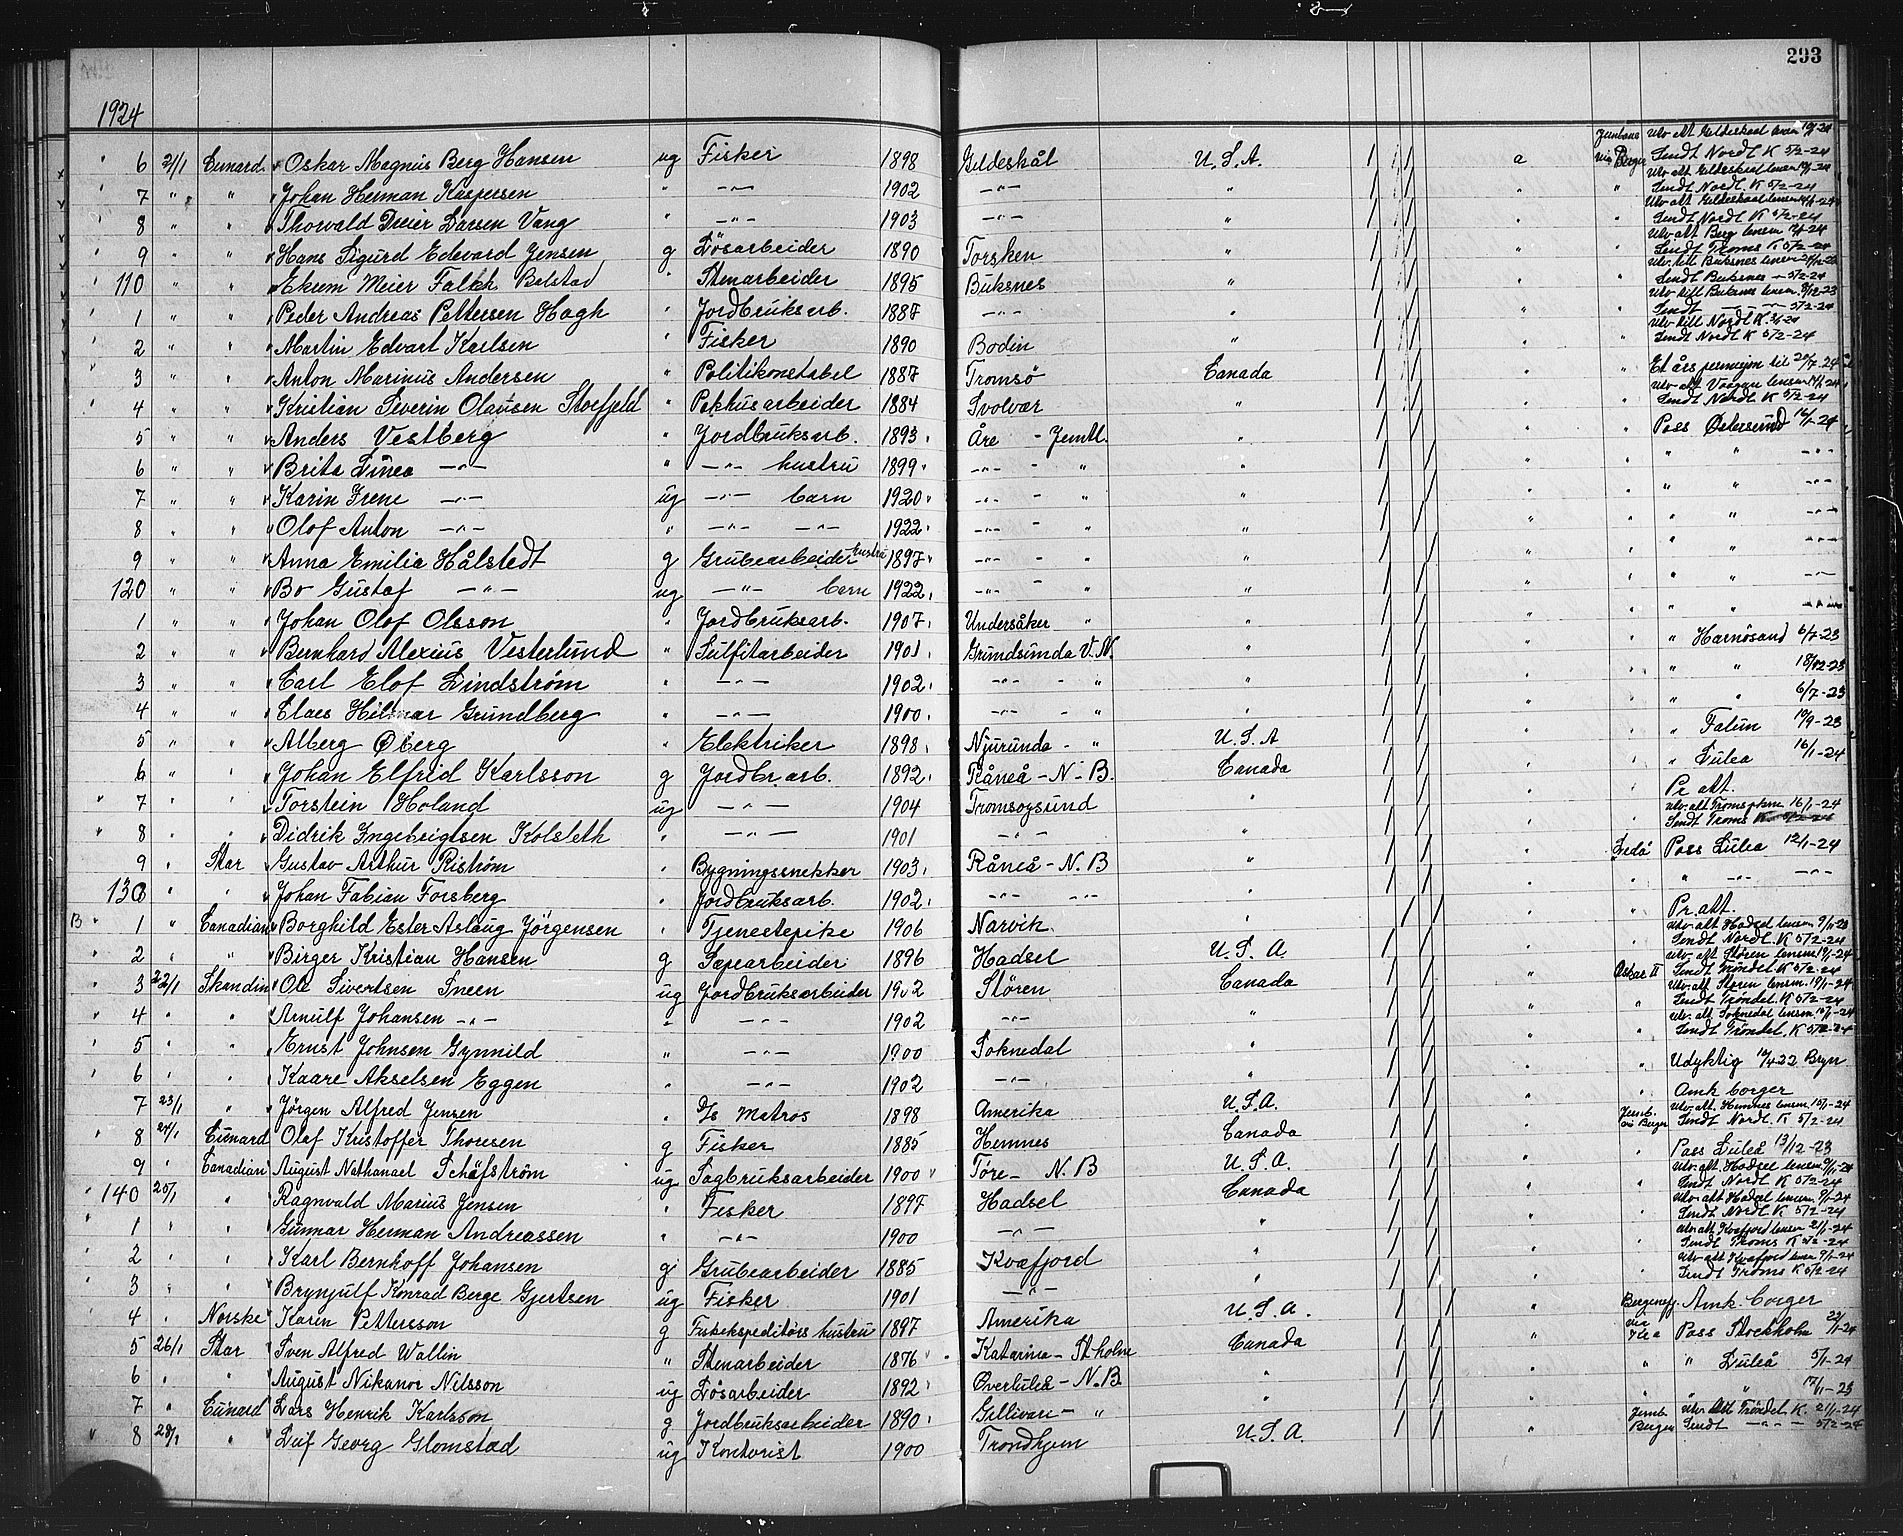 293
1924
6 21/1 Cunard Oskar Magnus Berg Hansen ug Fisker 1898 Gildeskål U.S.A. 1 1 a Jernbane via Bergen Utv. att Gildeskaal lensm 10/1-24 Sendt Nordl K 5/2-24
7 " " Johan Herman Kaspersen " —"— 1902 —"— " " " Utv att Gildeskaal lensm Sendt Nordl. K 5/2-24
8 " " Thorvald Dreier Larsen Vang " —"— 1903 —"— " " " Utv att Gildeskaal lensm Sendt Nordl K 5/2-24
9 " " Hans Sigurd Edevard Jensen g Løsarbeider 1890 Torsken " " " Utv att Berg lensm Sendt Troms K 5/2-24
110 " " Meier Falch Bolstad " Stenarbeider 1895 Buksnes " Utv. till Buksnes lensm Sendt Buksnes — 5/2-24
1 " " Peder Andreas Pettersen Hagh " Jordbruksarb. 1887 —"— " " " Utv till Buksnes lensm. Sendt —"— 5/2-24
2 " " Martin Edvart Karlsen " Fisker 1890 Bodin " " Utv till Nordl K. Sendt Nordl K 5/2-24
3 " " Anton Marinus Andersen " Politikonstabel 1887 Tromsø Canada " " Et års permisjon til
4 " " Kristian Severin Olausen Storfjeld " Pakhusarbeider 1884 Svolvær " " " Utv att Vaagan lensm Sendt Nordl. K 5/2-24
5 " " Anders Vestberg " Jordbruksarb. 1893 Åre - Jemtl. " " " Pass Østersund 16/1-24
6 " " Brita Linea —"— " —"— hustru 1899 —"— " " " " " " —"—
7 " " Karin Irene —"— ug —"— barn 1920 —"— - " " " " " " —"—
8 " " Olof Anton —"— " —"— —"— 1922 —"— - " " " " " " —"—
9 " " Anna Emilia Hålstedt g Grubearbeider hustru 1897 —"— - " " " " " " —"—
120 " " Bo Gustaf —"— ug —"— barn 1922 —"— - " " " " " " —"—
1 " " Johan Olof Olsson " Jordbruksarb. 1907 Undersåker " " " " " " —"—
2 " " Bernhard Alexius Vesterlund " Sulfitarbeider 1901 Grundsunda V.N. " " " " Harnösand 6/7-23
3 " " Carl Elof Lindstrøm " —"— 1902 —"— - " " " " " " 18/12-23
4 " " Claes Hilmar Grundberg " —"— 1900 —"— - " " " " " " 6/7-23
5 " " Alberg Øberg " Elektriker 1898 Njurunda - " U.S.A " " " Falun 19/9-23
6 " " Johan Elfrid Karlsson g Jordbr.arb. 1892 Råneå - N-B. Canada " " " Lulea 16/1-24
7 " " Torstein Holand ug —"— 1904 Tromsøysund " " " Pr att.
8 " " Didrik Ingebrigtsen Kolsleth " —"— 1901 —"— " " " Utv. att Troms 16/1-24 Sendt Troms K 5/2-24
9 " Star Gustav Arthur Riström " Bygningssnekker 1903 Råneå - N.B " " Pass Lulea 12/1-24
130 " " Johan Fabian Forsberg " Jordbruksarb. 1902 —"— —"— " " " " —"— —"—
B 1 " Canadian Borghild Ester Aslaug Jörgensen " Tjenestepike 1906 Narvik. " " " Pr. att.
2 " " Birger Kristian Hansen g Sæpearbeider 1896 Hadsel U.S.A. " " Utv. att Hadsel lensm Sendt Nordl. K 5/2-24
3 22/1 Skandin Ole Sivertsen Sneen ug Jordbruksarbeider 1902 Stören Canada " Oskar II Utv. att Stören lensm. 19/1-24 Sendt Tröndel K 5/2-24
4 " " Arnulf Johansen —"— " —"— 1902 —"— " " " Utv. att Stören lensm. 19/1-24 Sendt Tröndel. K 5/2-24
5 " " Ernst Johnsen Gynnild " —"— 1900 Soknedal " " " Utv. att Soknedal lensm. Sendt Tröndel. K 5/2-24
6 " " Kaare Akselsen Eggen " —"— 1902 —"— " " " Udyktig Bryn
7 23/1 " Jörgen Alfred Jensen " Matros 1898 Amerika U.S.A. " " Amk borger
8 24/1 Cunard Olaf Kristoffer Thoresen g Fisker 1885 Hemnes Canada " Jernb. via Bergen Utv. att. Hemnes lensm 15/1-24 Sendt Nordl. K 5/2-24
9 " Canadian August Nathanael Schäfström ug Sagbruksarbeider 1900 Töre - N.B U.S.A. " " Pass Luleå 13/12-23
140 25/1 " Ragnvald Marius Jensen " Fisker 1897 Hadsel Canada " " Utv. att Hadsel lensm Sendt Nordl K 5/2-24
1 " " Gunnar Herman Andreassen " —"— 1900 —"— " " " Utv att Hadsel lensm Sendt Nordl K. 5/2-24
2 " " Karl Bernhoff Johansen g Grubearbeider 1885 Kvæfjord " " " Utv att Kvæfjord lensm 21/1-24 Sendt Troms K 5/2-24
3 " " Brynjulf Konrad Berge Gjertsen ug Fisker 1901 —"— " " " Utv att Kvæfjord lensm Sendt Troms K 5/2-24
4 " Norske Karin Pettersson g Fiskekspeditørs hustru 1897 Amerika U.S.A. " Bergensfj. Amk. borger
5 26/1 Star Sven Alfred Wallin " Stenarbeider 1876 Katarina - St.holm Canada " via Pass Stockholm
6 " " August Nikanor Nilsson ug Løsarbeider 1892 Øverluleå - N.B. " " " " Luleå 5/1-24
7 " Cunard Lars Henrik Karlsson g Jordbruksarbeider 1890 Gellivare - " " " " " 17/11-23
8 28/1 " Leif Georg Glomstad ug Kontorist 1900 Trondhjem U.S.A. " Jernb Bergen Utv. att Tröndel K. 21/1-24 Sendt —"— 5/2-24